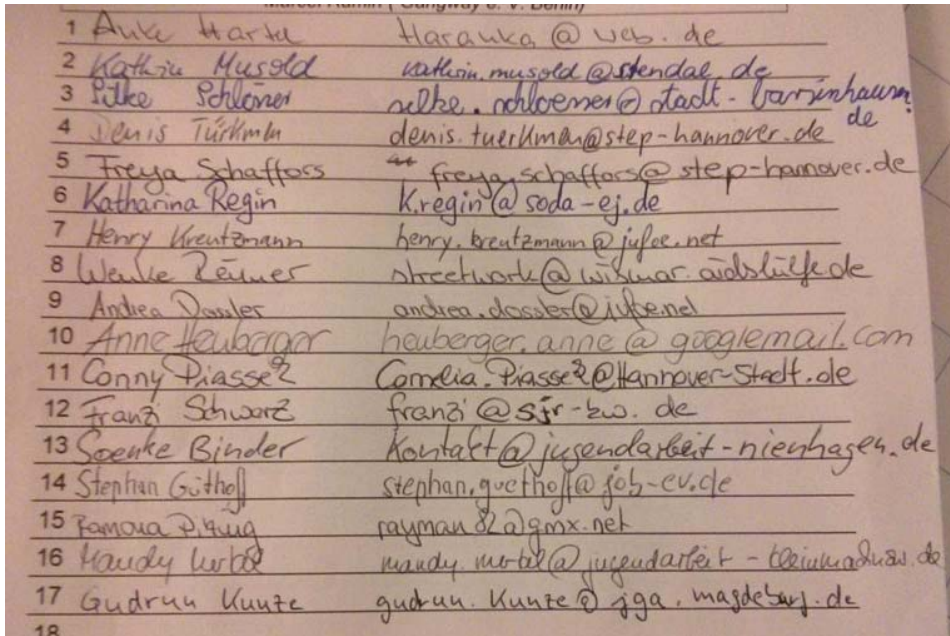 Marcel Kamin (Gangway e. V. Berlin)
1 Anke Harte Haranka@web.de
2 Kathrin Musold kathrin.musold@stendal.de
3 Silke Schlöner silke.schloener@stadt-barsinhausen.
de
4 Denis Türkman denis.tuerkman@step-hannover.de
5 Freya Schaffors freya.schaffors@step-hannover.de
6 Katharina Regin K.regin@soda-ej.de
7 Henry Kreutzmann henry.kreutzmann@jufoe.net
8 Wenke streetwork@wismar.aidshilfe.de
9 Andrea Dossler andrea.dossler@
10 Anne Heuberger heuberger.anne@googlemail.com
11 Conny Piasse Cornelia.Piasse@Hannover-Stadt.de
12 Franzi Schwarz franzi@sjr-zw.de
13 Soenke Binder Kontakt@jugendarbeit-nienhagen.de
14 Stephan Güthoff stephan.guethoff@job-ev.de
15 Ramona rayman82@gmx.net
16 Mandy
17 Gudrun Kunze gudrun.Kunze@jga.magdeburg.de
18